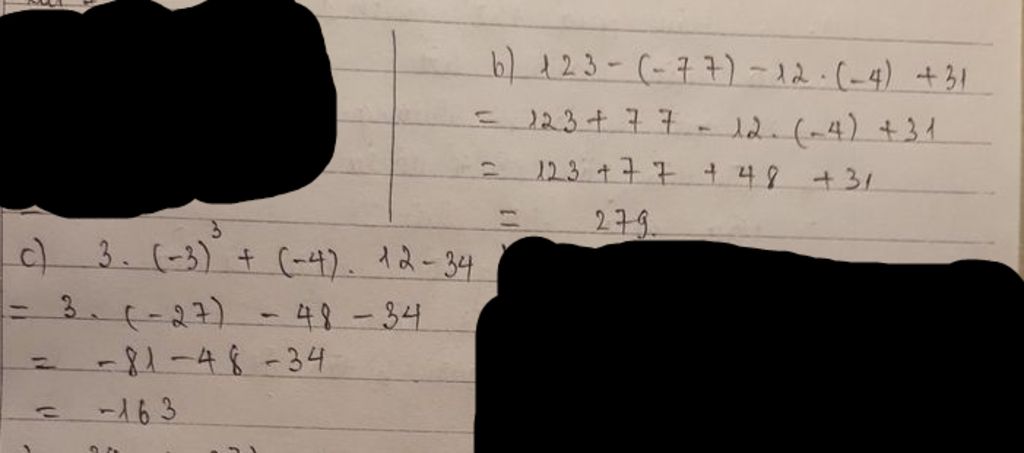 b) 123 - (-77) - 12 . (-4) + 31
= 123 + 77 - 12 . (-4) + 31
= 123 + 77 + 48 + 31
= 279.
c) 3 . (-3)³ + (-4) . 12 - 34
= 3 . (-27) - 48 - 34
= -81 - 48 - 34
= -163